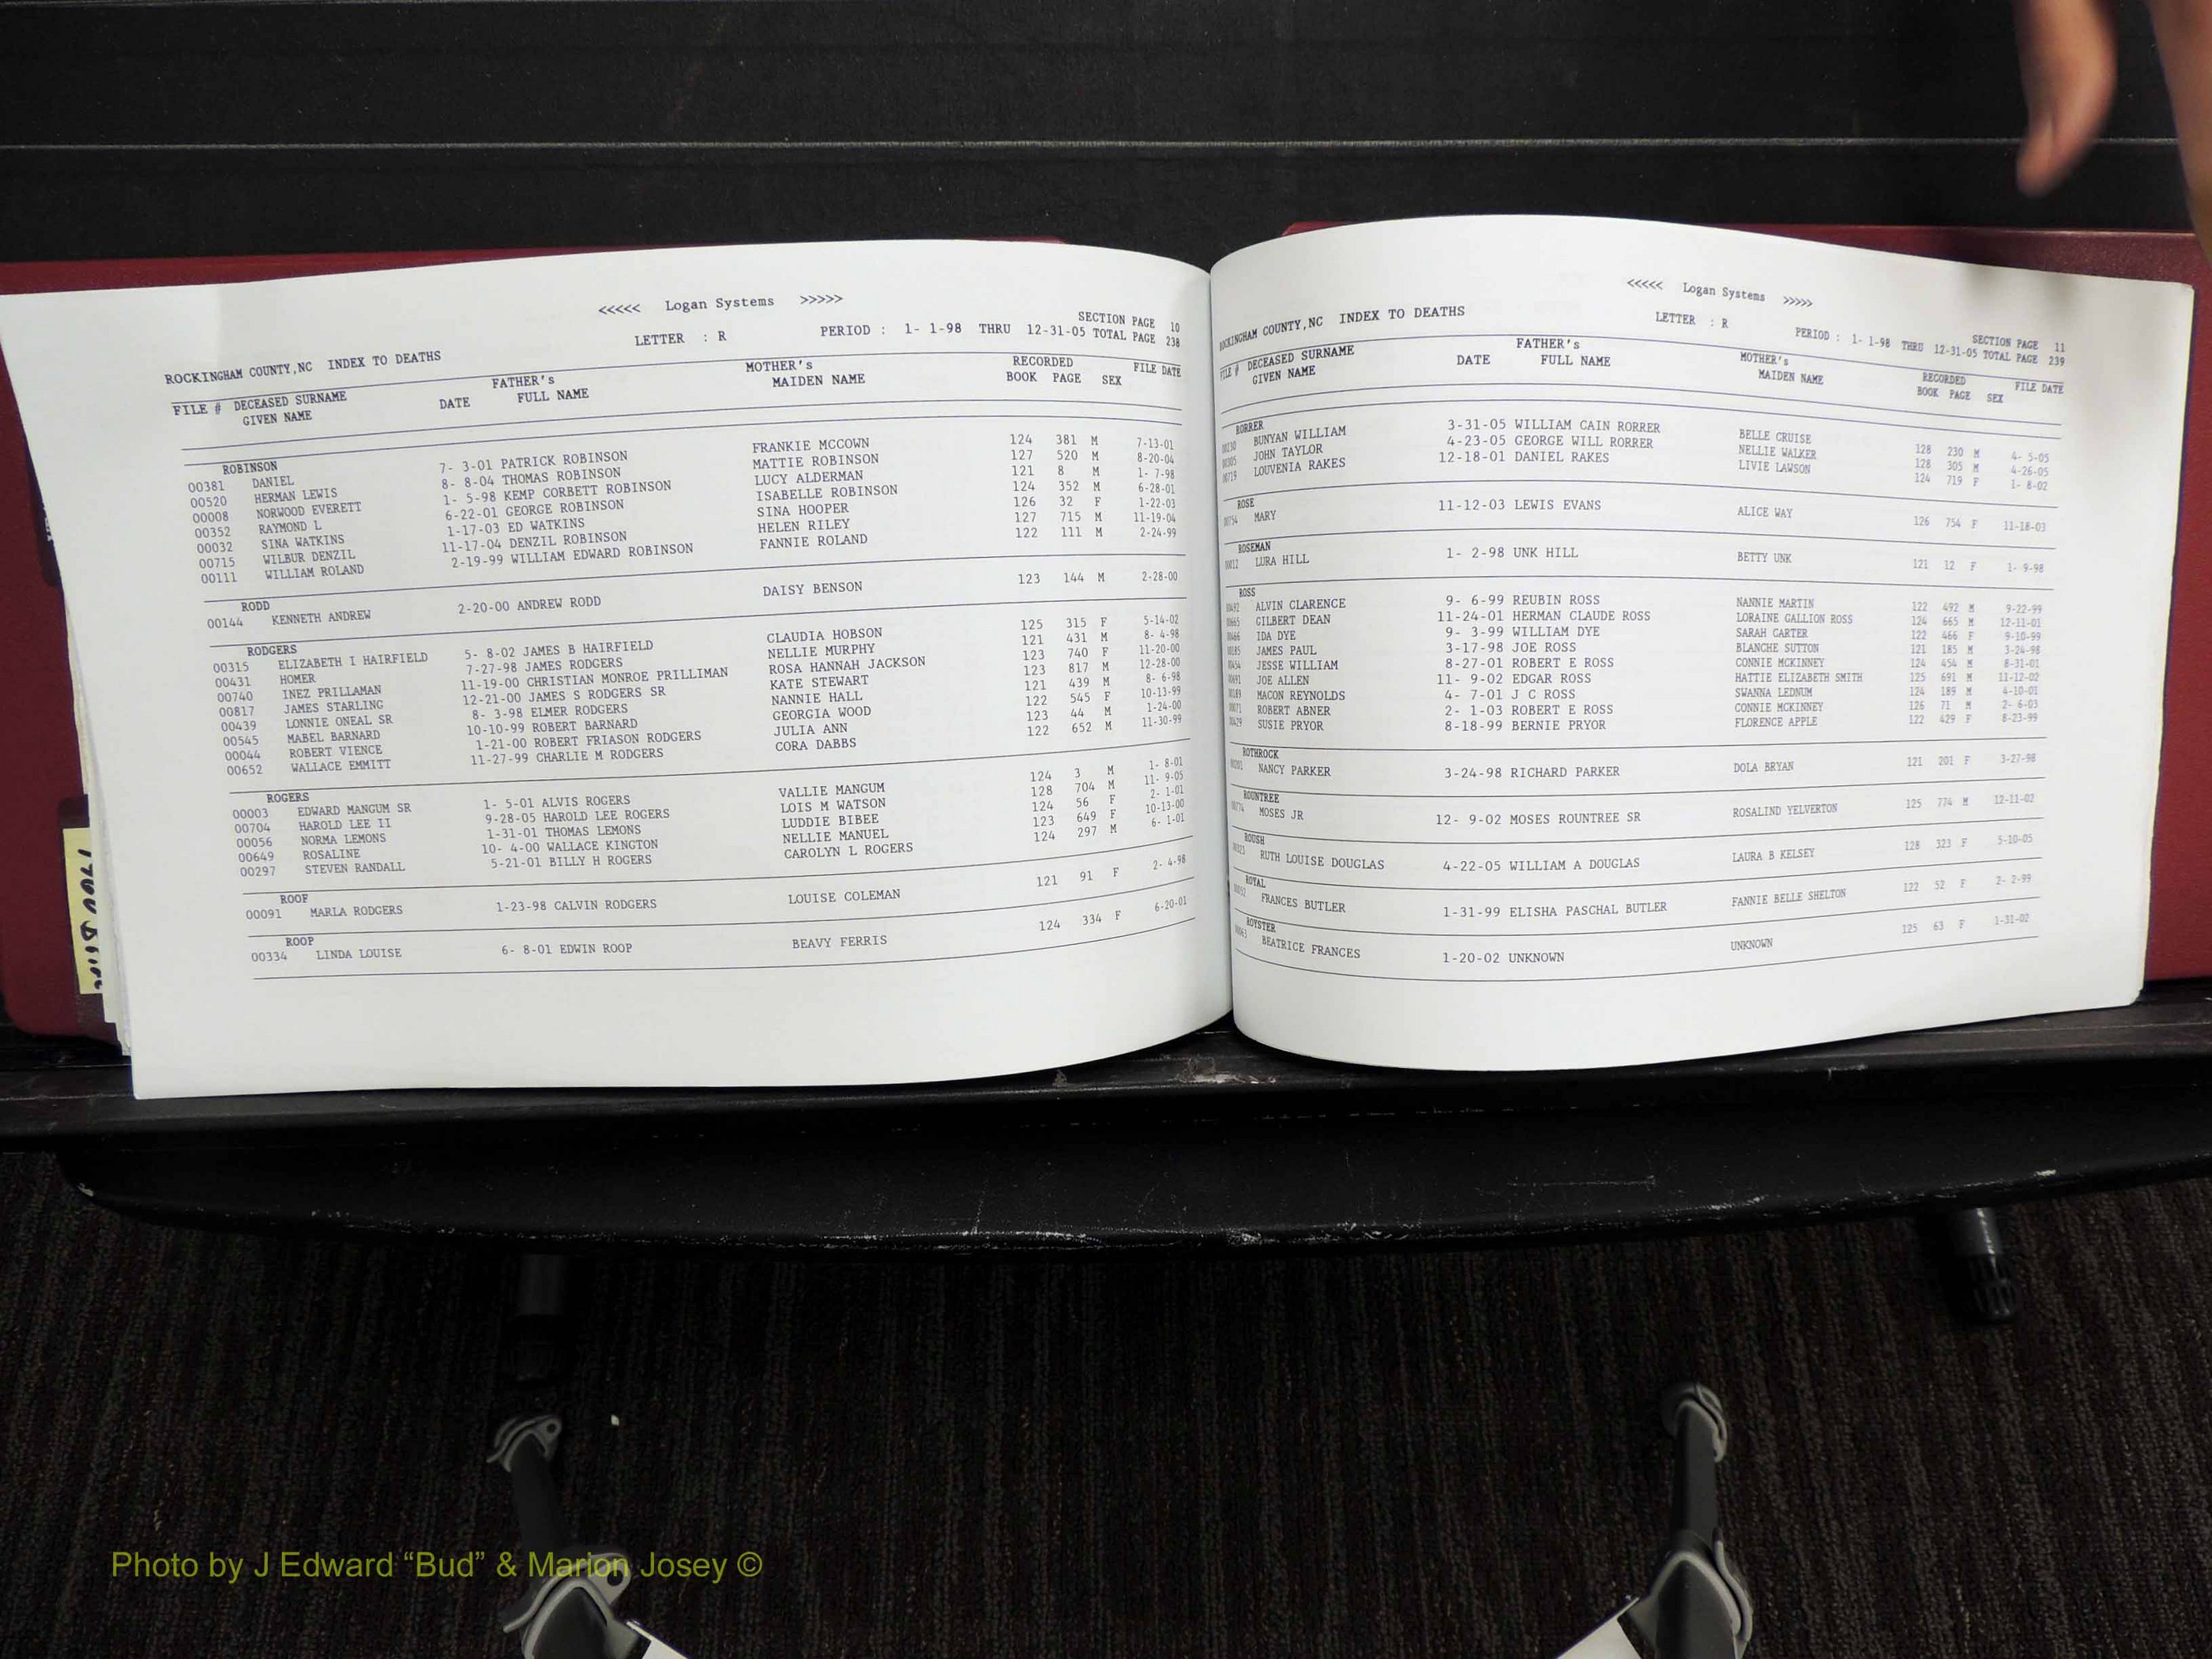 <<<<< Logan Systems >>>>>
SECTION PAGE 10
ROCKINGHAM COUNTY,NC INDEX TO DEATHS LETTER : R PERIOD : 1- 1-98 THRU 12-31-05 TOTAL PAGE 238
FATHER's MOTHER's RECORDED FILE DATE
FILE # DECEASED SURNAME DATE FULL NAME MAIDEN NAME BOOK PAGE SEX
GIVEN NAME
ROBINSON
00381 DANIEL 7- 3-01 PATRICK ROBINSON FRANKIE MCCOWN 124 381 M 7-13-01
00520 HERMAN LEWIS 8- 8-04 THOMAS ROBINSON MATTIE ROBINSON 127 520 M 8-20-04
00008 NORWOOD EVERETT 1- 5-98 KEMP CORBETT ROBINSON LUCY ALDERMAN 121 8 M 1- 7-98
00352 RAYMOND L 6-22-01 GEORGE ROBINSON ISABELLE ROBINSON 124 352 M 6-28-01
00032 SINA WATKINS 1-17-03 ED WATKINS SINA HOOPER 126 32 F 1-22-03
00715 WILBUR DENZIL 11-17-04 DENZIL ROBINSON HELEN RILEY 127 715 M 11-19-04
00111 WILLIAM ROLAND 2-19-99 WILLIAM EDWARD ROBINSON FANNIE ROLAND 122 111 M 2-24-99
RODD
00144 KENNETH ANDREW 2-20-00 ANDREW RODD DAISY BENSON 123 144 M 2-28-00
RODGERS
00315 ELIZABETH I HAIRFIELD 5- 8-02 JAMES B HAIRFIELD CLAUDIA HOBSON 125 315 F 5-14-02
00431 HOMER 7-27-98 JAMES RODGERS NELLIE MURPHY 121 431 M 8- 4-98
00740 INEZ PRILLAMAN 11-19-00 CHRISTIAN MONROE PRILLIMAN ROSA HANNAH JACKSON 123 740 F 11-20-00
00817 JAMES STARLING 12-21-00 JAMES S RODGERS SR KATE STEWART 123 817 M 12-28-00
00439 LONNIE ONEAL SR 8- 3-98 ELMER RODGERS NANNIE HALL 121 439 M 8- 6-98
00545 MABEL BARNARD 10-10-99 ROBERT BARNARD GEORGIA WOOD 122 545 F 10-13-99
00044 ROBERT VIENCE 1-21-00 ROBERT FRIASON RODGERS JULIA ANN 123 44 M 1-24-00
00652 WALLACE EMMITT 11-27-99 CHARLIE M RODGERS CORA DABBS 122 652 M 11-30-99
ROGERS
00003 EDWARD MANGUM SR 1- 5-01 ALVIS ROGERS VALLIE MANGUM 124 3 M 1- 8-01
00704 HAROLD LEE II 9-28-05 HAROLD LEE ROGERS LOIS M WATSON 128 704 M 11- 9-05
00056 NORMA LEMONS 1-31-01 THOMAS LEMONS LUDDIE BIBEE 124 56 F 2- 1-01
00649 ROSALINE 10- 4-00 WALLACE KINGTON NELLIE MANUEL 123 649 F 10-13-00
00297 STEVEN RANDALL 5-21-01 BILLY H ROGERS CAROLYN L ROGERS 124 297 M 6- 1-01
ROOF
00091 MARLA RODGERS 1-23-98 CALVIN RODGERS LOUISE COLEMAN 121 91 F 2- 4-98
ROOP
00334 LINDA LOUISE 6- 8-01 EDWIN ROOP BEAVY FERRIS 124 334 F 6-20-01
<<<<< Logan Systems >>>>>
SECTION PAGE 11
ROCKINGHAM COUNTY,NC INDEX TO DEATHS LETTER : R PERIOD : 1- 1-98 THRU 12-31-05 TOTAL PAGE 239
FATHER's MOTHER's RECORDED FILE DATE
FILE # DECEASED SURNAME DATE FULL NAME MAIDEN NAME BOOK PAGE SEX
GIVEN NAME
RORRER
00230 BUNYAN WILLIAM 3-31-05 WILLIAM CAIN RORRER BELLE CRUISE 128 230 M 4- 5-05
00305 JOHN TAYLOR 4-23-05 GEORGE WILL RORRER NELLIE WALKER 128 305 M 4-26-05
00719 LOUVENIA RAKES 12-18-01 DANIEL RAKES LIVIE LAWSON 124 719 F 1- 8-02
ROSE
00754 MARY 11-12-03 LEWIS EVANS ALICE WAY 126 754 F 11-18-03
ROSEMAN
00012 LURA HILL 1- 2-98 UNK HILL BETTY UNK 121 12 F 1- 9-98
ROSS
00492 ALVIN CLARENCE 9- 6-99 REUBIN ROSS NANNIE MARTIN 122 492 M 9-22-99
00665 GILBERT DEAN 11-24-01 HERMAN CLAUDE ROSS LORAINE GALLION ROSS 124 665 M 12-11-01
00466 IDA DYE 9- 3-99 WILLIAM DYE SARAH CARTER 122 466 F 9-10-99
00185 JAMES PAUL 3-17-98 JOE ROSS BLANCHE SUTTON 121 185 M 3-24-98
00454 JESSE WILLIAM 8-27-01 ROBERT E ROSS CONNIE MCKINNEY 124 454 M 8-31-01
00691 JOE ALLEN 11- 9-02 EDGAR ROSS HATTIE ELIZABETH SMITH 125 691 M 11-12-02
00189 MACON REYNOLDS 4- 7-01 J C ROSS SWANNA LEDNUM 124 189 M 4-10-01
00071 ROBERT ABNER 2- 1-03 ROBERT E ROSS CONNIE MCKINNEY 126 71 M 2- 6-03
00429 SUSIE PRYOR 8-18-99 BERNIE PRYOR FLORENCE APPLE 122 429 F 8-23-99
ROTHROCK
00201 NANCY PARKER 3-24-98 RICHARD PARKER DOLA BRYAN 121 201 F 3-27-98
ROUNTREE
00774 MOSES JR 12- 9-02 MOSES ROUNTREE SR ROSALIND YELVERTON 125 774 M 12-11-02
ROUSH
00323 RUTH LOUISE DOUGLAS 4-22-05 WILLIAM A DOUGLAS LAURA B KELSEY 128 323 F 5-10-05
ROYAL
00052 FRANCES BUTLER 1-31-99 ELISHA PASCHAL BUTLER FANNIE BELLE SHELTON 122 52 F 2- 2-99
ROYSTER
00063 BEATRICE FRANCES 1-20-02 UNKNOWN UNKNOWN 125 63 F 1-31-02
Photo by J Edward “Bud” & Marion Josey ©